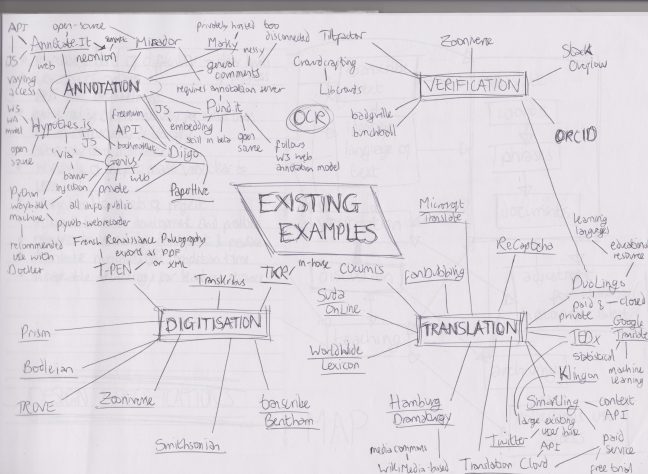 API
open-source
Annotate.It
JS
web
neonion
Mirador
privately hosted
Marky
too
disconnected
messy
general
comments
Tiltfactor
Zooniverse
Stack
Overflow
Crowdcrafting
Libcrowds
VERIFICATION
ANNOTATION
varying
access
requires annotation server
Pundit
JS
embedding
still in beta
open
source
follows
W3 web
annotation model
OCR
badgeville
bunchball
ORCID
W3
WA
model
Hypothes.is
freemium
API
bookmarklet
open
source
'Via'
Genius
Diigo
web
banner
injection
private
all info public
PaperHive
Python
wayback
machine
pywb-webrecorder
recommended
use with
Docker
EXISTING
EXAMPLES
Microsoft
Translate
learning
languages
educational
resource
ReCaptcha
DuoLingo
French Renaissance Paleography
exports as PDF
or XML
T-PEN
Transkribus
TKR/
in-house
Cucumis
Fandubbing
paid &
private
closed
Google
Translate
Suda
OnLine
DIGITISATION
TRANSLATION
TEDx
statistical
Prism
Worldwide
Lexicon
Klingon
machine
learning
Bodleian
Hamburg
Dramaturgy
Smartling
context
API
TROVE
Zooniverse
Transcribe
Bentham
large existing
user base
Twitter
API
paid
service
Smithsonian
media commons
WikiMedia-based
Translation Cloud
free tool